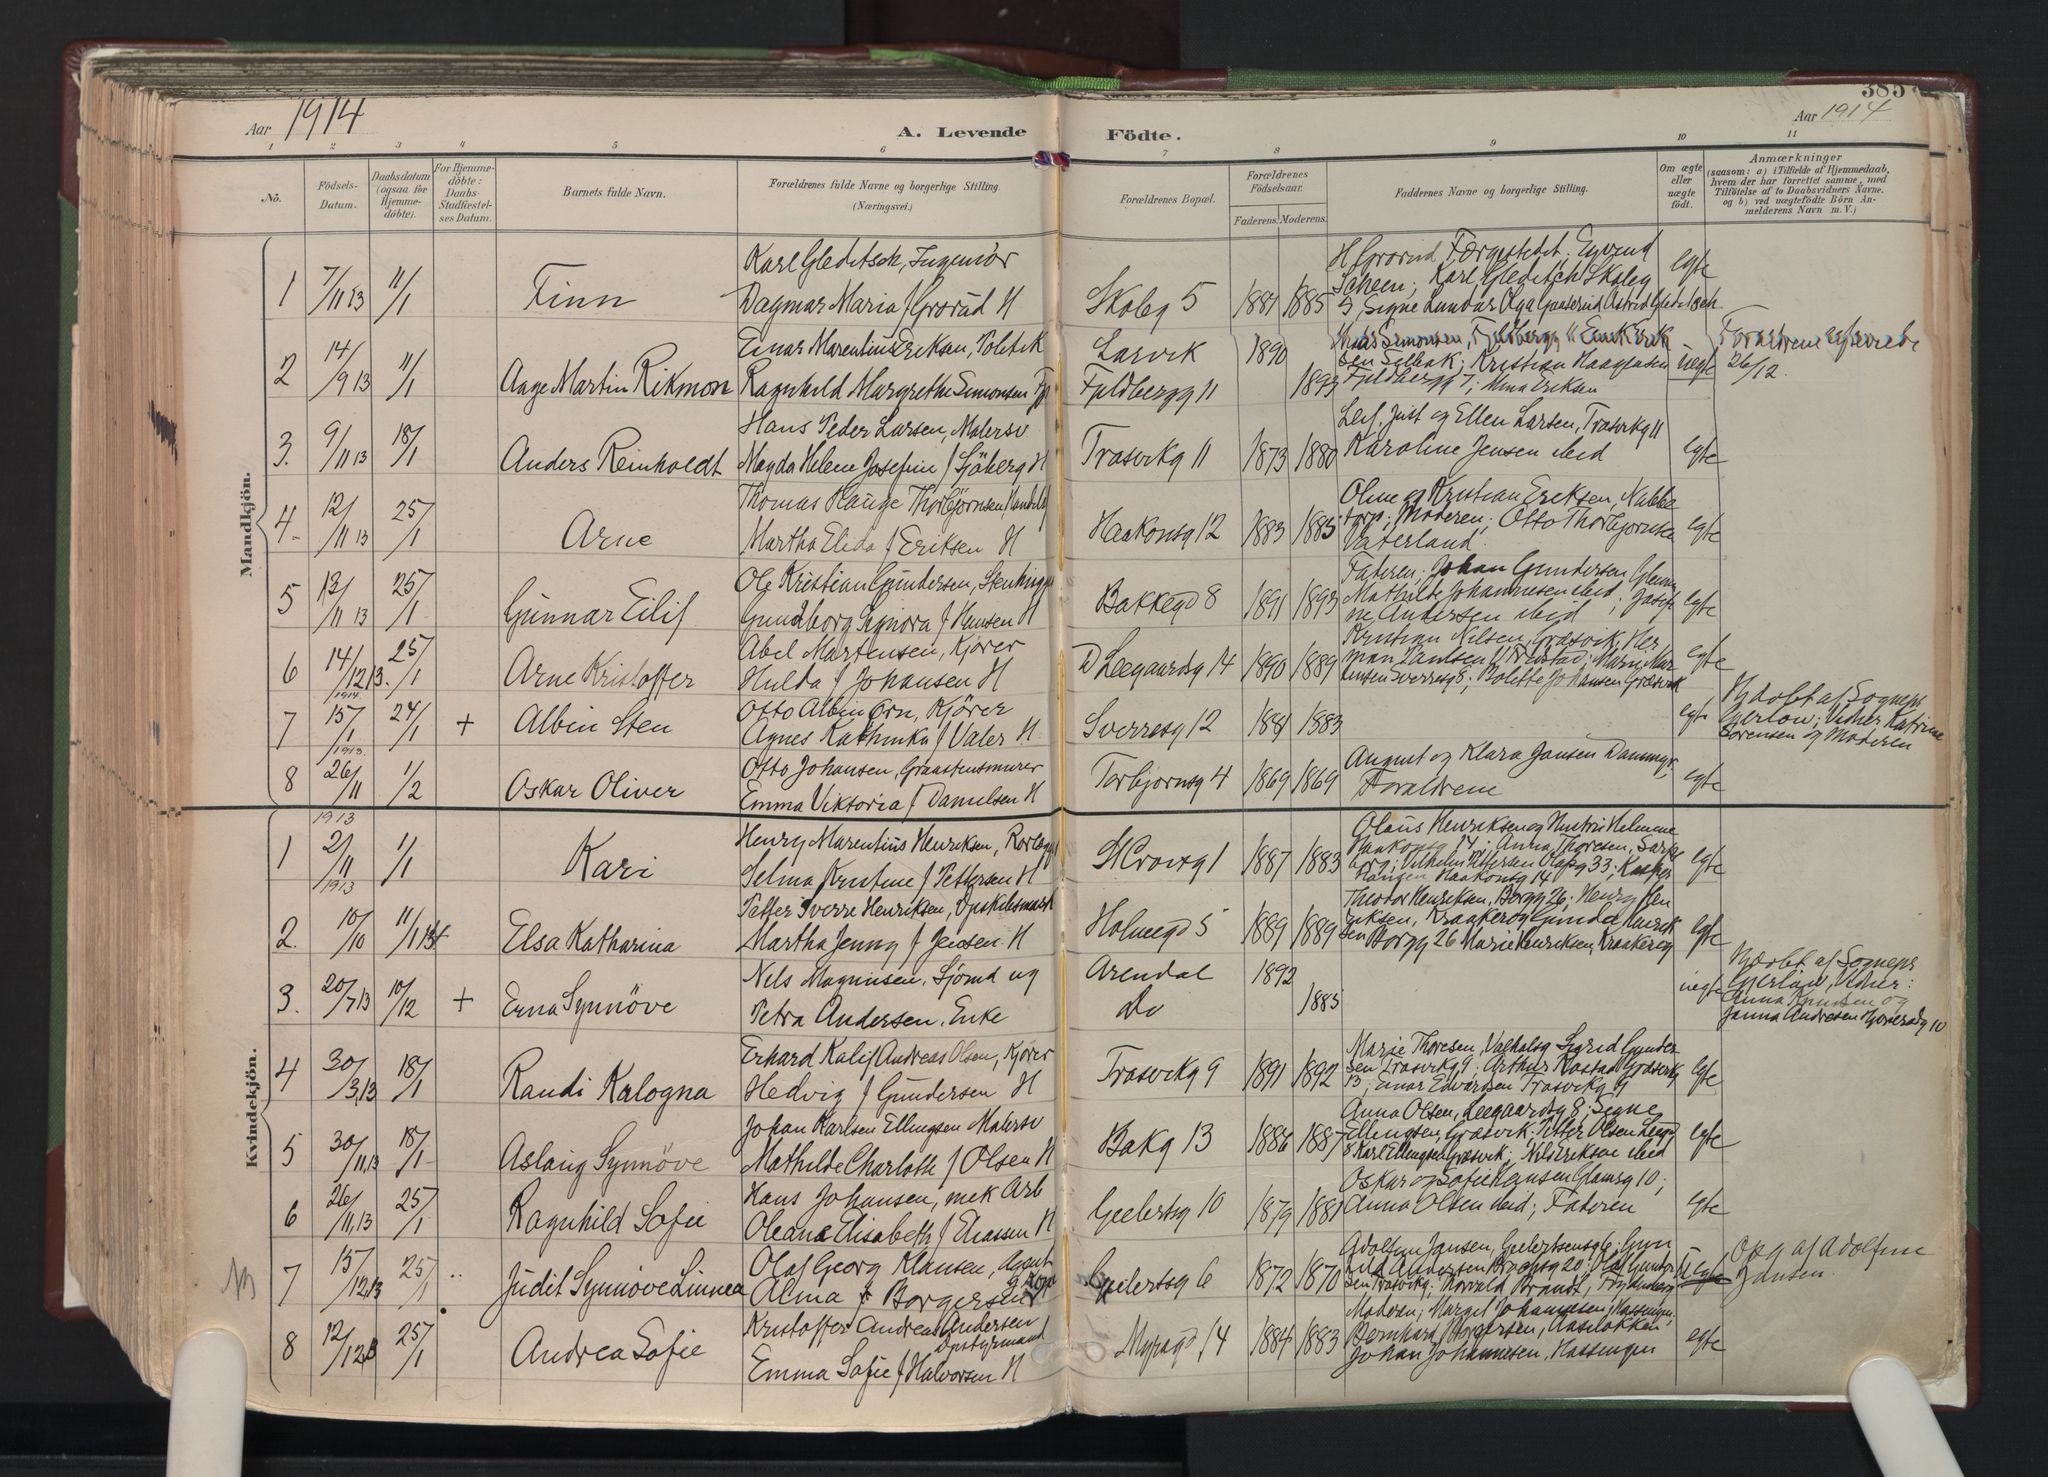 385
Aar 1914
A. Levende Födte.
Aar 1914
1 2 3 4 5 6 7 8 9 10 11
No.
Födsels-Datum.
Daabsdatum (ogsaa for Hjemme-döbte).
For Hjemme-döbte: Daabs-Stadfæstel-ses Datum.
Barnets fulde Navn.
Forældrenes fulde Navne og borgerlige Stilling.
(Næringsvei.)
Forældrenes Bopæl.
Forældrenes Födselsaar.
Faderens. Moderens.
Faddernes Navne og borgerlige Stilling.
Om ægte eller uægte födt.
Anmærkninger
(saasom: a) i Tilfælde af Hjemmedaab, hvem der har forrettet samme, med Tilföielse af to Daabsvidners Navne. og b) ved uægtefödte Börn An-melderens Navn m. V.)
Mandkjön.
1 7/11 13 11/1 Finn
Karl Gleditsch, Ingeniör
Dagmar Maria f Grorud H
Skoleg 5 1881 1885
Karl Gleditsch Skoleg
5, Signe Lundar Olga Astrid Gleditsch
egte
2 14/9 13 11/1 Aage Martin Rikmon
Einar Marentius Eriksen, Politik
Ragnhild Margrethe Simonsen
Larvik 1890
Fjeldbergg 11 1893
Simonsen, Fjeldbergg 11
Selbak; Kristian
Fjeldbergg 7; Eriksen
uegte
Forældrene egteviede
26/12.
3. 9/11 13 18/1 Anders Reinholdt
Hans Peder Larsen, Malersv
Magda Helene Josefine f Sjöberg H
Trosvikg 11 1873 1880
Leif, Just og Ellen Larsen, Trosvikg 11
Karoline Jensen ibid
egte
4 12/11 13 25/1 Arne
Thomas Hauge Thorbjörnsen
Martha Elida f Eriksen H
Haakonsg 12 1883 1885
Oline og Kristian Eriksen, Nabbe
torp; Moderen; Otto Thorbjörnsen
Vaterland
egte
5 13/11 13 25/1 Gunnar Eilif
Ole Kristian Gundersen, Stenhugge
Gundborg Signora f Hansen H
Bakkegd 8 1891 1893
Faderen; Johan Gundersen Glem
Mathilde Johannesen ibid; Josefi
ne Andersen ibid
egte
6 14/12 13. 25/1 Arne Kristoffer
Abel Martensen, Kjörer
Hulda f Johansen H
D Leegaardsg 14 1890 1889
Kristian Nilsen, Græsvik; Her
man Paulsen Marie Mar
tensen Sverresg 8; Bolette Johansen Græsvik
egte
1914.
7 15/1 24/1 + Albin Sten
Otto Albin Örn, Kjörer
Agnes Kathinka f Valer H
Sverresg 12 1881 1883
egte
Hjdöbt af Sognepr
Gjerlöw; Vidner Katrine
Sorensen og Moderen
1913.
8 26/11 1/2 Oskar Oliver
Otto Johansen, Graastensmurer
Emma Viktoria f Danielsen H
Torbjornsg 4 1869 1869
August og Klara Jansen
Foraldrene
egte
Kvindekjön.
1913
1 2/11 1/1 Kari
Henry Marentius Henriksen, Rorlægger
Selma Kristine f Pettersen H
St Crorsg 1 1887 1883
Olaus Henriksen og Hustru Helmine
Haakonsg 14; Anna Thoresen, Sarps
borg; Vilhelm Pettersen Olafsg 33; Kasper
Haakonsg 14
egte
1913
2. 10/10 11/1
Elsa Katharina
Petter Sverre Henriksen, Opskibsmask
Martha Jenny f Jensen H
Holmegd 5 1889 1889
Theodor Henriksen, Borgg 26; Henry Hen
riksen, Kraakerog Gunda Henrik
sen Borgg 26 Marie Henriksen, Kraakerog
egte
3. 20/7 13 10/12 + Erna Synnöve
Nels Magnusen, Sjömd og
Petra Andersen, Enke
Arendal 1892
Do 1885
uegte
Hjdöbt af Sognepr
Gjerlöw, Vidner:
Anna Knudsen og
Janna Andresen
4 30/3,13 18/1 Randi Kalogna
Erhard Kalif Andreas Olsen, Kjörer
Hedvig f Gundersen H
Trosvikg 9 1891 1892
Marie Thoresen, Valhalsg Sigrid Gunder
sen Trosvikg 9; Arthur
13; Einar Edvardsen Trosvikg 9
egte
5 30/11,13 18/1 Aslaug Synnöve
Johan Karlsen Ellingsen Malersv
Mathilde Charlotte f Olsen H
Bakg 13 1886 1887
Anna Olsen, Leegaardsg 8; Signe
Ellingsen, Græsvik; Petter Olsen Leegd
8 Karl Ellingsen Græsvik; Nils Eriksen ibid
egte
6 26/11,13 25/1 Ragnhild Sofie
Hans Johansen, mek Arb
Oleana Elisabeth f Eliassen H
Geelertsg 10 1879 1881
Oskar og Sofie Hansen Glamsg 10;
Anna Olsen ibid; Faderen
egte
NB
7 15/12,13 25/1 Judit Synnöve Linnea
Olaf Georg Klausen, Agent
Alma Borgersen
Geelertsg 6 1872 1870
Adolfine Jansen, Geelertsensg 6; Gun
hild Andersen 20; Olaf Gunder
sen Trosvikg; Thorvald Brandt,
uegte
Opg af Adolfine
Jansen.
8 12/12,13 25/1 Andrea Sofie
Kristoffer Andreas Andersen
Opstyrmand
Emma Sofie f Halvorsen H
Myragd 14 1884 1883
Moderen; Margit Johannesen, Hassingen;
Bernhard Borgersen, Aaslökken
Johan Johannesen, Hassingen
egte